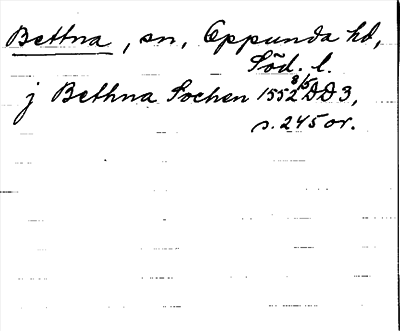 Bettna, sn, Oppunda hd,
Söd. l.
j Bethna Sochen 1552 8/5 DD3,
s. 245 or.